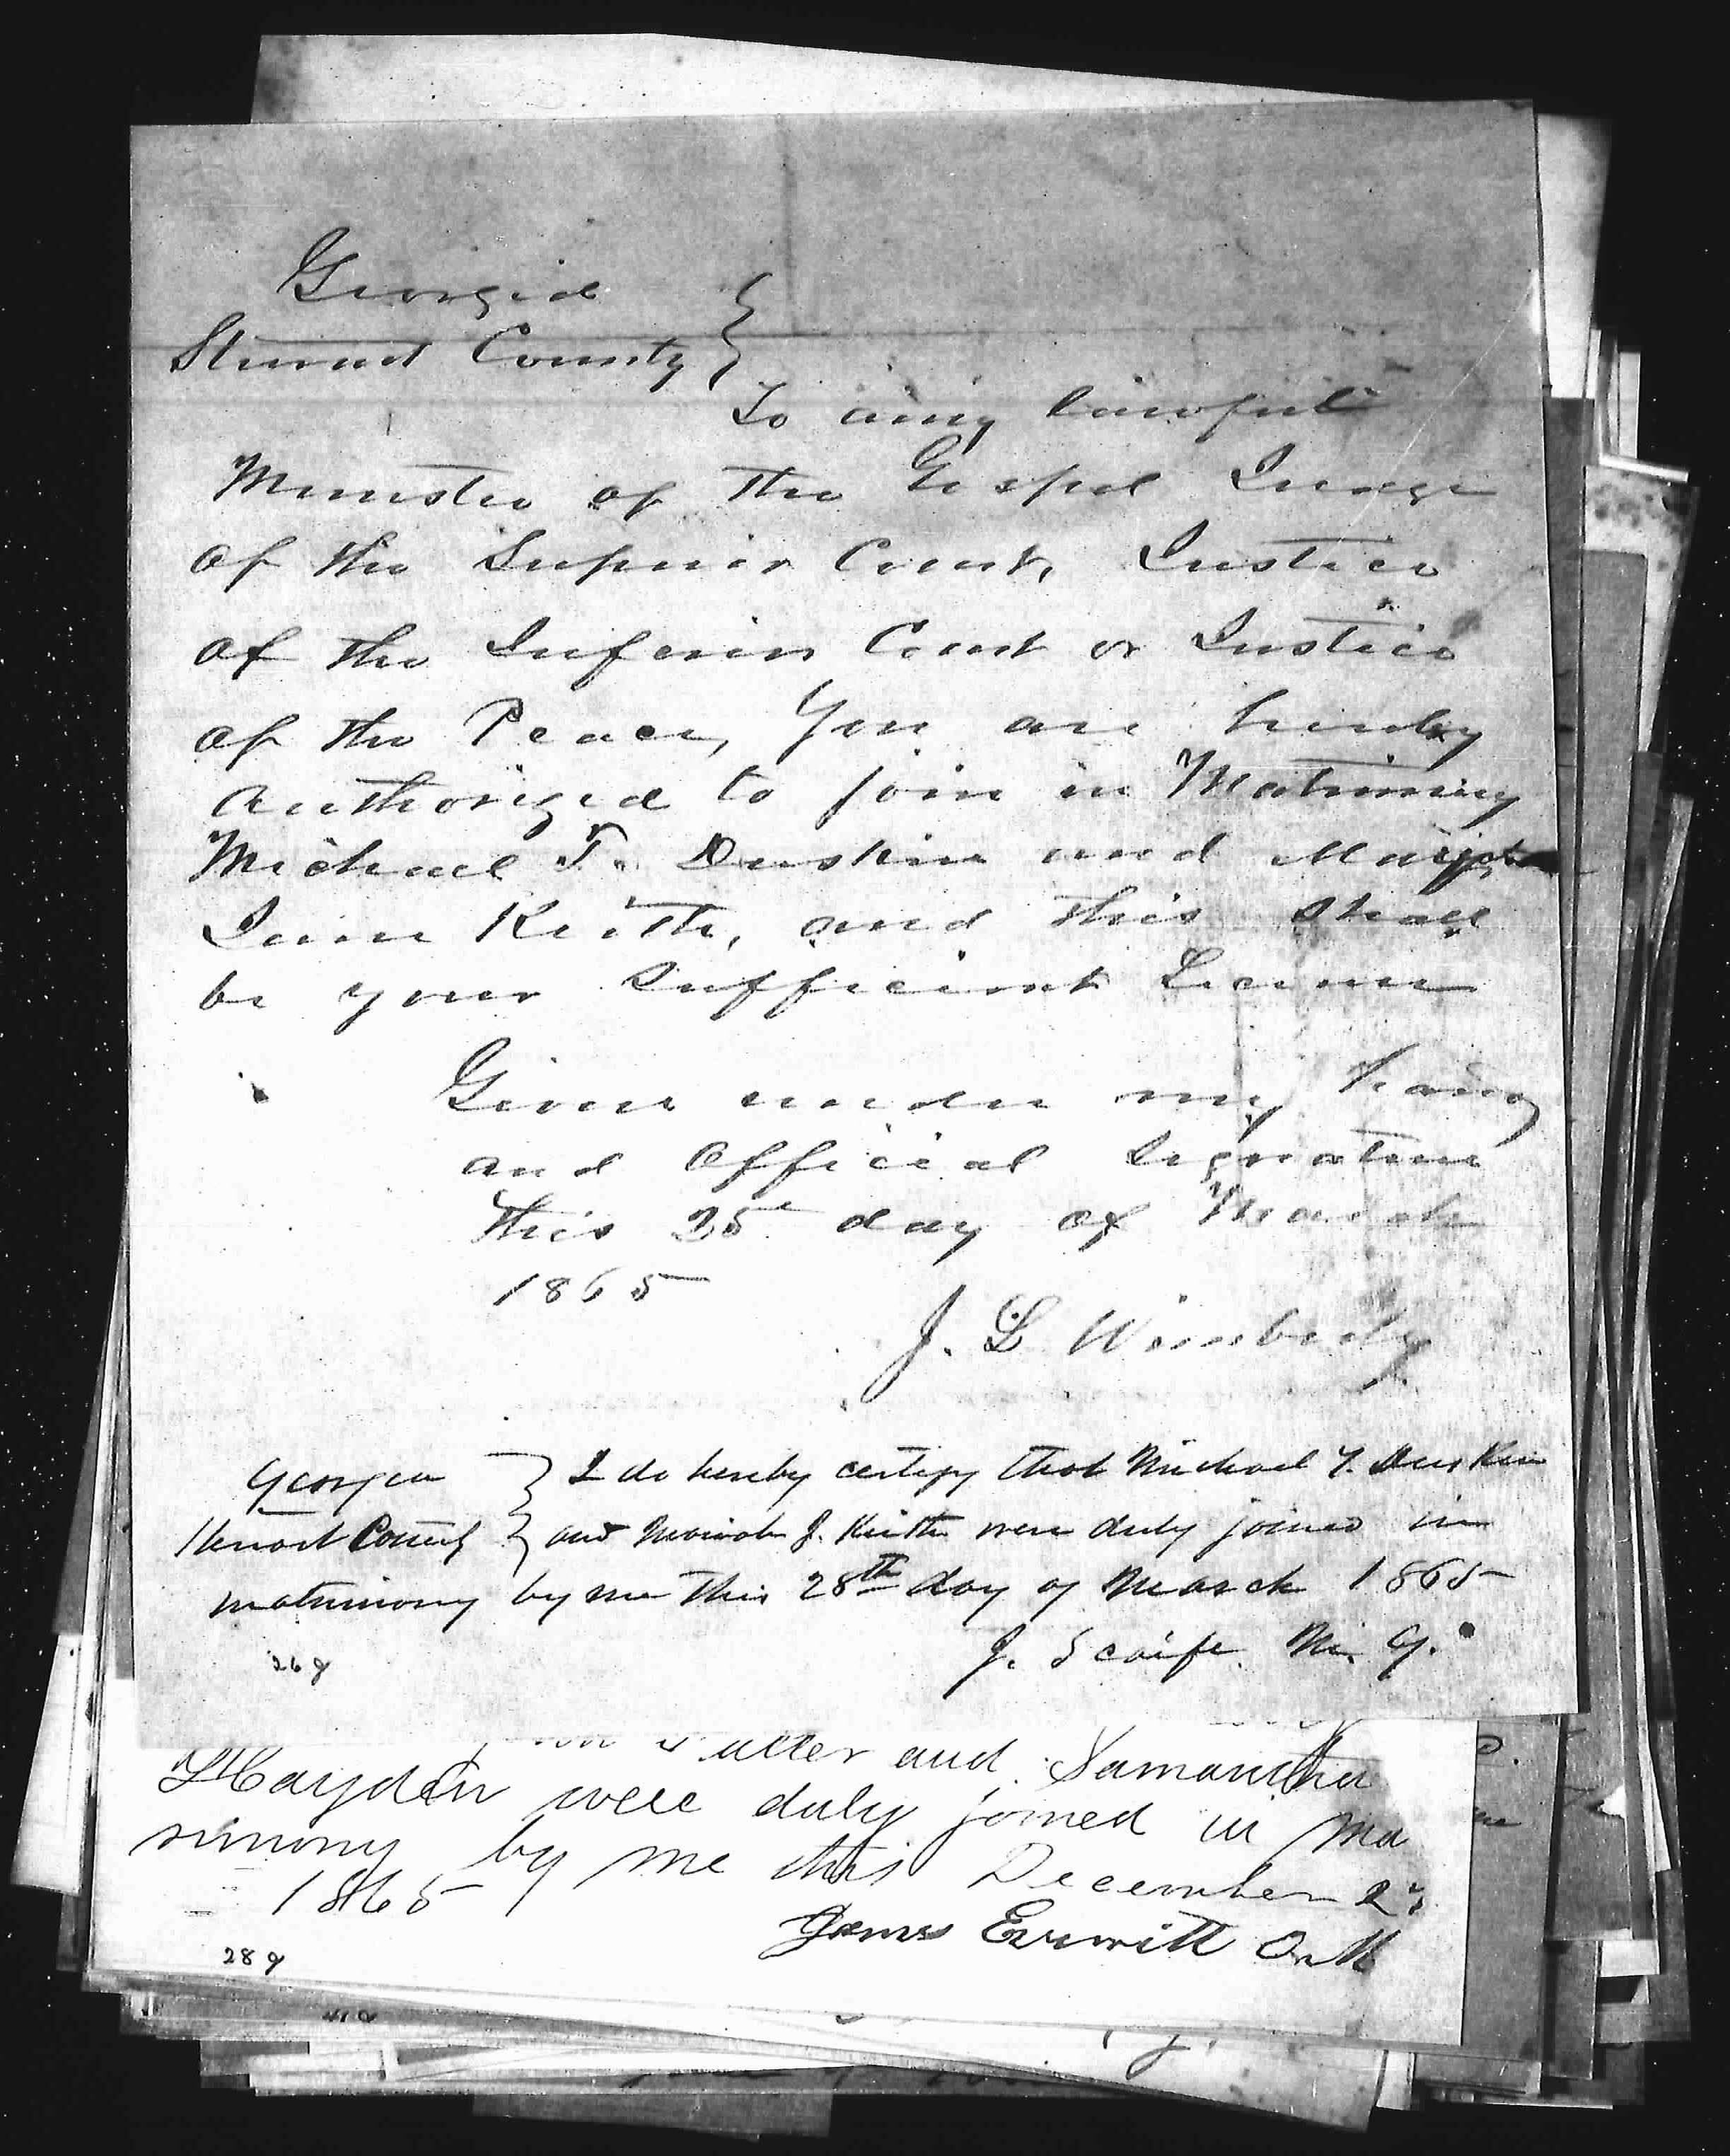 Georgia
Stewart County
To any lawful
Minister of the Gospel Judge
of the Superior Court, Justice
of the Inferior Court or Justice
of the Peace, You are hereby
authorized to join in Matrimony
Michael T. Duskin and
Jane Keith, and this shall
be your sufficient License
Given under my hand
and official signature
this 25 day of March
1865
J. L Wimberly
Georgia } I do hereby certify that Michael T. Duskin
Stewart County } and Mariah J. Keith were duly joined in
matrimony by me this 28th day of March 1865
J. Scaife M. G.
268
and Samantha
Hayden were duly joined in Ma
rimony by me this December
1865
James O. M
289